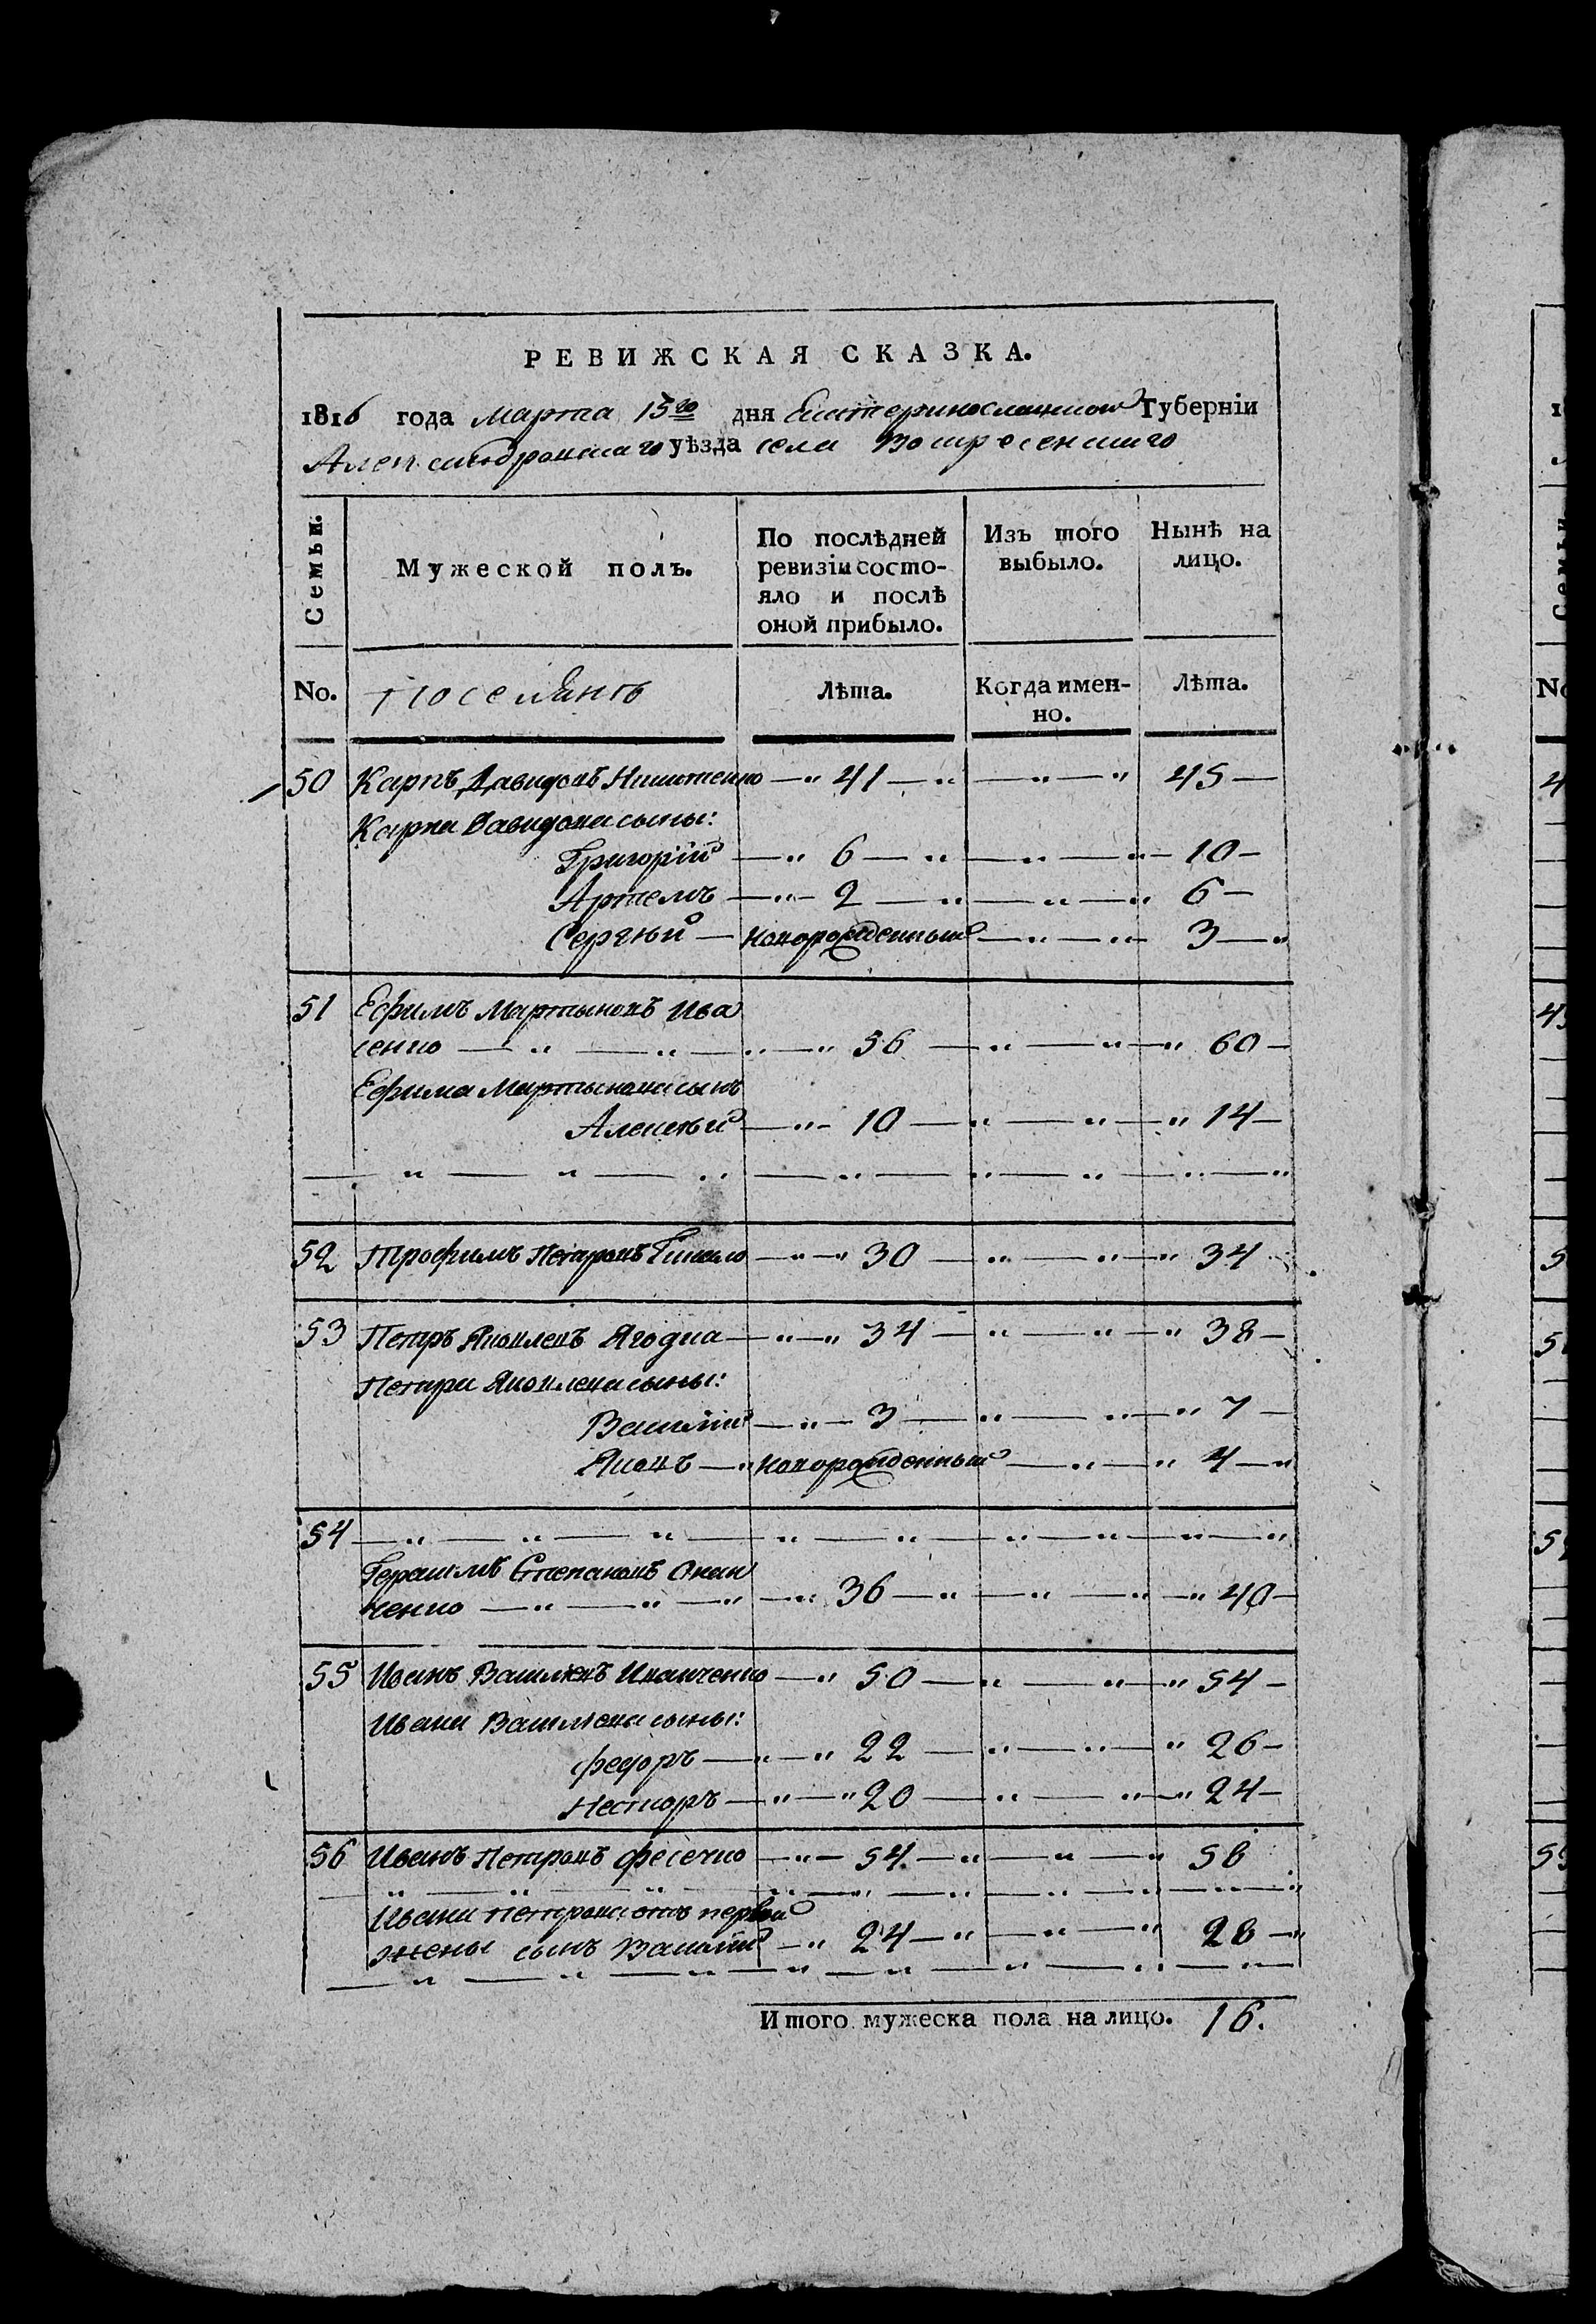 РЕВИЖСКАЯ СКАЗКА.
1816 года Марта 15го дня Екатеринославской Губерніи
Александровскаго уѣзда села Воскресенскаго
Семьи.
Мужеской полъ.
По послѣдней ревизіи состо-
яло и послѣ
оной прибыло.
Изъ того
выбыло.
Нынѣ на
лицо.
No. Поселянъ Лѣта. Когда имен-
но. Лѣта.
50 Карпъ Давидовъ Никитенко — 41 — 45
Карпа Давидова сыны:
Григорій — 6 — 10
Артемъ — 2 — 6
Сергѣй — новорожденный — 3
51 Ефимъ Мартыновъ Ива
сенко — 56 — 60
Ефима Мартынова сынъ
Алексѣй — 10 — 14
52 Трофимъ Петровъ — 30 — 34
53 Петръ Яковлевъ Ягодка — 34 — 38
Петра Яковлева сыны:
Василій — 3 — 7
Яковъ — новорожденный — 4
54
Герасимъ Степановъ Онан
ченко — 36 — 40
55 Иванъ Васильевъ Иванченко — 50 — 54
Ивана Васильева сыны:
Федоръ — 22 — 26
Несторъ — 20 — 24
56 Иванъ Петровъ Фесечко — 54 — 58
Ивана Петрова отъ первой
жены сынъ Василій — 24 — 28
Итого мужеска пола на лицо. 16.